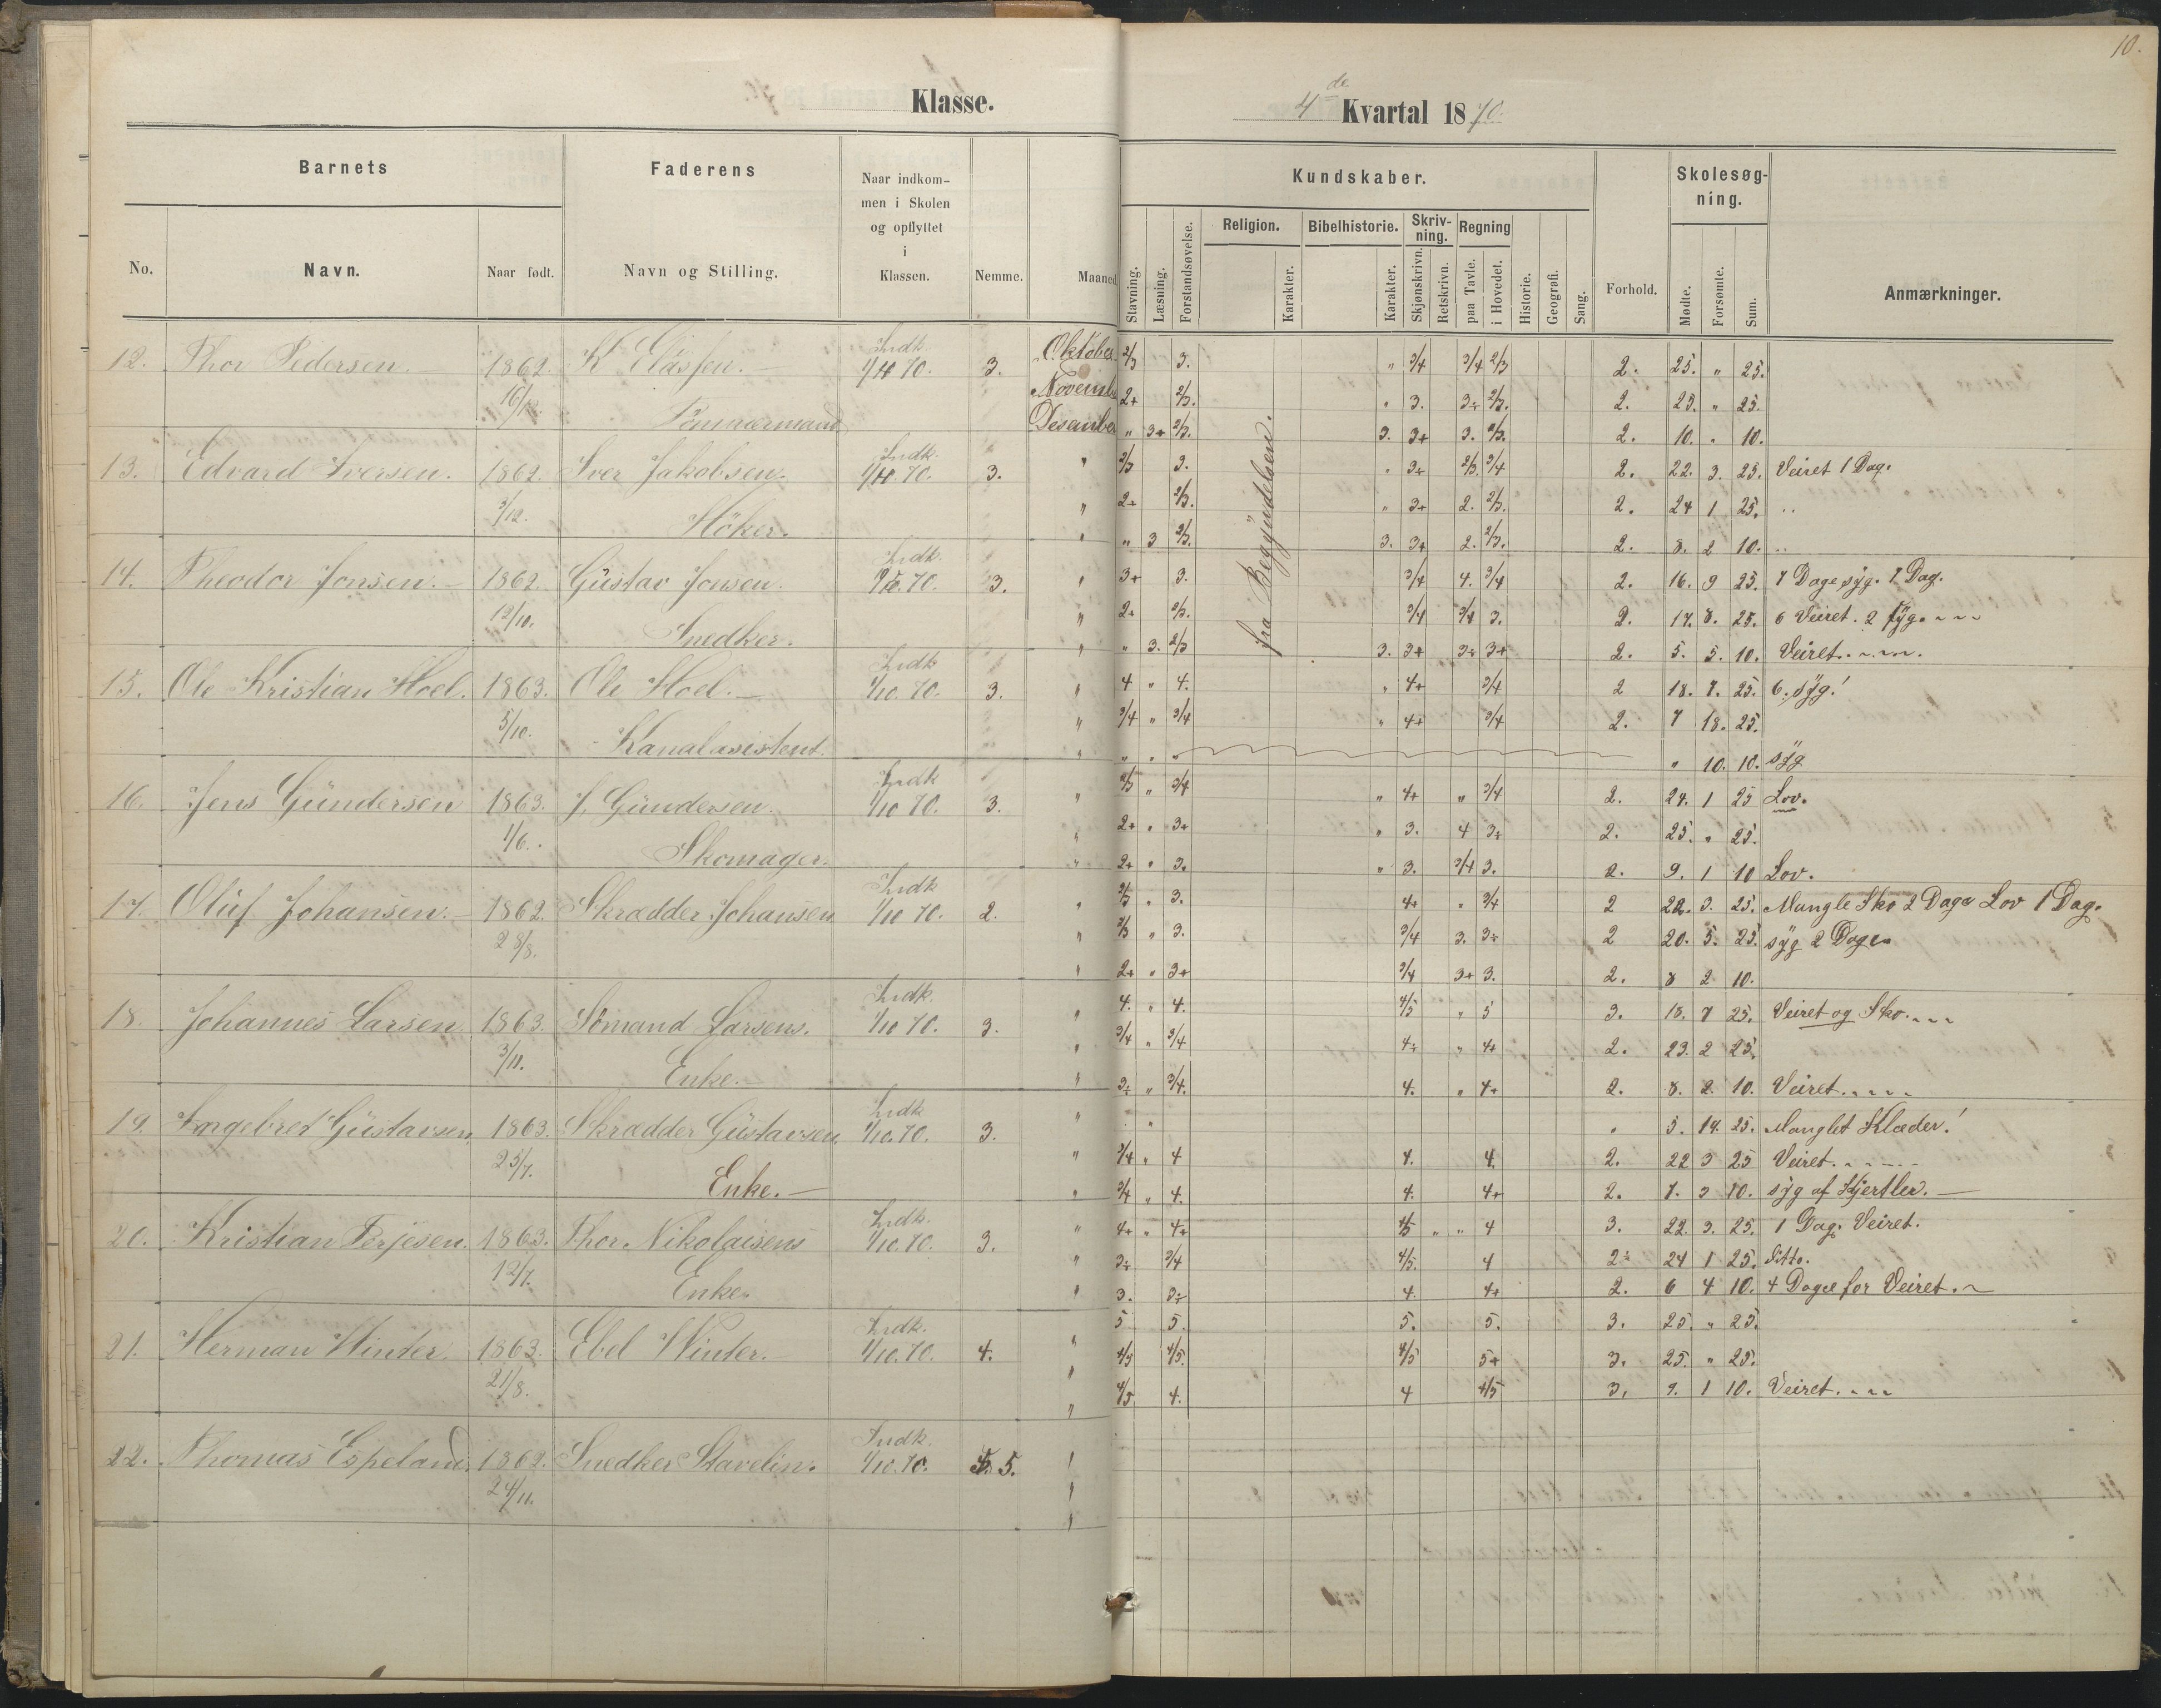 10.
Klasse.
4de Kvartal 1870.
Barnets
Faderens
Naar indkom-
men i Skolen
og opflyttet
i
Klassen.
No.
Navn.
Naar født.
Navn og Stilling.
Nemme.
Maaned
Kundskaber.
Skolesøg-
ning.
Stavning.
Læsning.
Forstandsøvelse.
Religion.
Karakter.
Bibelhistorie.
Karakter.
Skriv-
ning.
Skjønskrivn.
Retskrivn.
Regning
paa Tavle.
i Hovedet.
Historie.
Geografi.
Sang.
Forhold.
Mødte.
Forsømte.
Sum.
Anmærkninger.
fra Begyndelsen.
12. Thor Pedersen. 1862. Indk. 3. Oktober 2/3 3. " 3/4 3/4 2/3 2. 25. " 25.
Tømmermand November 2+ 2/3. " 3. 3÷ 2/3. 2. 25. " 25.
Desember " 3+ 2/3. 3. 3+ 3. 2/3. 2. 10. " 10.
13. Edvard Iversen. 1862. Iver Jakobsen. Indk. 3. " 2/3 3. " 3÷ 2/3. 3/4 2. 22. 3. 25. Veiret 1 Dag.
3/12. Høker. " 2+ 2/3. " 3+ 2. 2/3. 2. 24 1 25. "
" " 3 2/3. 3. 3+ 2. 2/3. 2. 8. 2 10. "
14. Theodor Jonsen. 1862. Gustav Jonsen. Indk. 3. " 3+ 3. 3/4 4. 3/4 2. 16. 9 25. 7 Dage syg. 1 Dag.
12/10. Snedker. " 2÷ 2/3. 3/4 3/4 3. 2. 17. 8. 25. 6 Veiret. 2 syg.
" " 3. 2/3 3. 3+ 3÷ 3+ 2. 5. 5. 10. Veiret.
15. Ole Kristian Hoel. 1863. Ole Hoel. Indk 1/10. 70. 3. " 4 " 4. " 4+ 3/4 2 18. 7. 25. 6. syg!
5/10. Kanalasistent. " 3/4 " 3/4 " 4+ 3/4 2. 7 18. 25.
" " " " " 10. 10. syg
16. Jens Gundersen 1863. J. Gundersen. Indk 1/10 70. 3. " 2/3 " 3/4 " 4+ " 3/4 2. 24. 1 25 Lov.
1/6. Skomager. " 2+ " 3+ " 3. 4 3÷ 2. 25. " 25.
" 2+ " 3. " 3. 3/4 3. 2. 9. 1 10 Lov.
17. Oluf Johansen. 1862. Skrædder Johansen Indk 1/10 70. 2. " 2/3 " 3. 4+ " 3/4 2 22. 3. 25. Mangle Sko 2 Dage Lov 1 Dag.
28/8. " 2/3 " 3. 3/4 3. 3÷ 2 20. 5. 25. syg 2 Dage
" 2+ " 3+ 3/4 3+ 3. 2. 8 2 10.
18. Johannes Larsen 1863. Sømand Larsens. Indk. 1/10 70. 3. " 4. " 4. 4/5 " 5 3. 18. 7 25. Veiret og Sko.
3/11. Enke. " 3/4 " 3/4 4÷ " 4+ 2. 23. 2 25.
" 3÷ " 3/4. 4. " 4+ 2. 8. 2 10. Veiret.
19. Ingebret Gustavsen 1863. Skrædder Gustavsen Indk 1/10. 70. 3. " " 25. Manglet Klæder!
25/7. Enke. " 3/4 " 4 4. 4. 2. 22 3 25 Veiret.
" 3/4 " 4. 4. 4+ 2. 7. 3 10. syg af Kjertler.
20. Kristian Terjesen. 1863. Thor Nikolaisens Indk. 1/10. 70. 3. " 4+ " 4+ 4/5 " " 4 3. 22. 3. 25. 1 Dag. Veiret.
12/7. Enke. " 3÷ 3/4 4/5. 4 2÷ 24 1 25. Ditto.
" 3. 3÷ 4. 4+ 2. 6 4 10. 4 Dage for Veiret.
21. Herman Winter. 1863. Ebel Winter. Indk. 1/10. 70. 4. " 5 5. 5. 5. 3. 25. " 25.
21/8. " 4/5 4/5. 4/5 5+ 3. 25. " 25.
" 4/5 4. 4 4/5 3. 9. 1 10. Veiret.
22. Thomas Espeland. 1862. Snedker Stavelin. Indk. 1/10. 70. 5. "
24/11. "
"